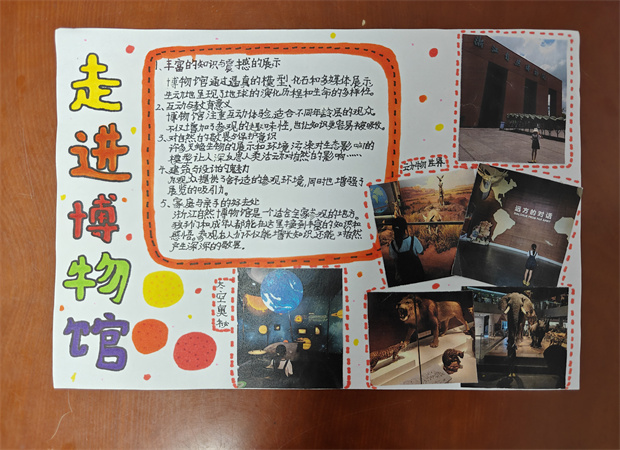 走进博物馆
1、丰富的知识与震撼的展示
博物馆通过逼真的模型、化石和多媒体展示,
生动地呈现了地球的演化历程和生命的多样性。
2、互动与教育意义
博物馆注重互动体验,适合不同年龄层的观众,
不仅增加了参观的趣味性,也让知识更容易被吸收。
3、对自然的敬畏与保护意识
许多灭绝生物的展示和环境污染对生态影响的
模型让人深刻意识人类活动对自然的影响……
4、建筑与设计的魅力
为观众提供了舒适的参观环境,同时也增强了
展览的吸引力。
5、家庭与亲子的好去处
浙江自然博物馆是一个适合全家参观的地方。
孩子们和成年人都能在这里接到丰富的知识和
感悟。参观生人分不仅能增长知识,还能对自然
产生深深的敬意。
动物世界
远方的对话
太空奥秘